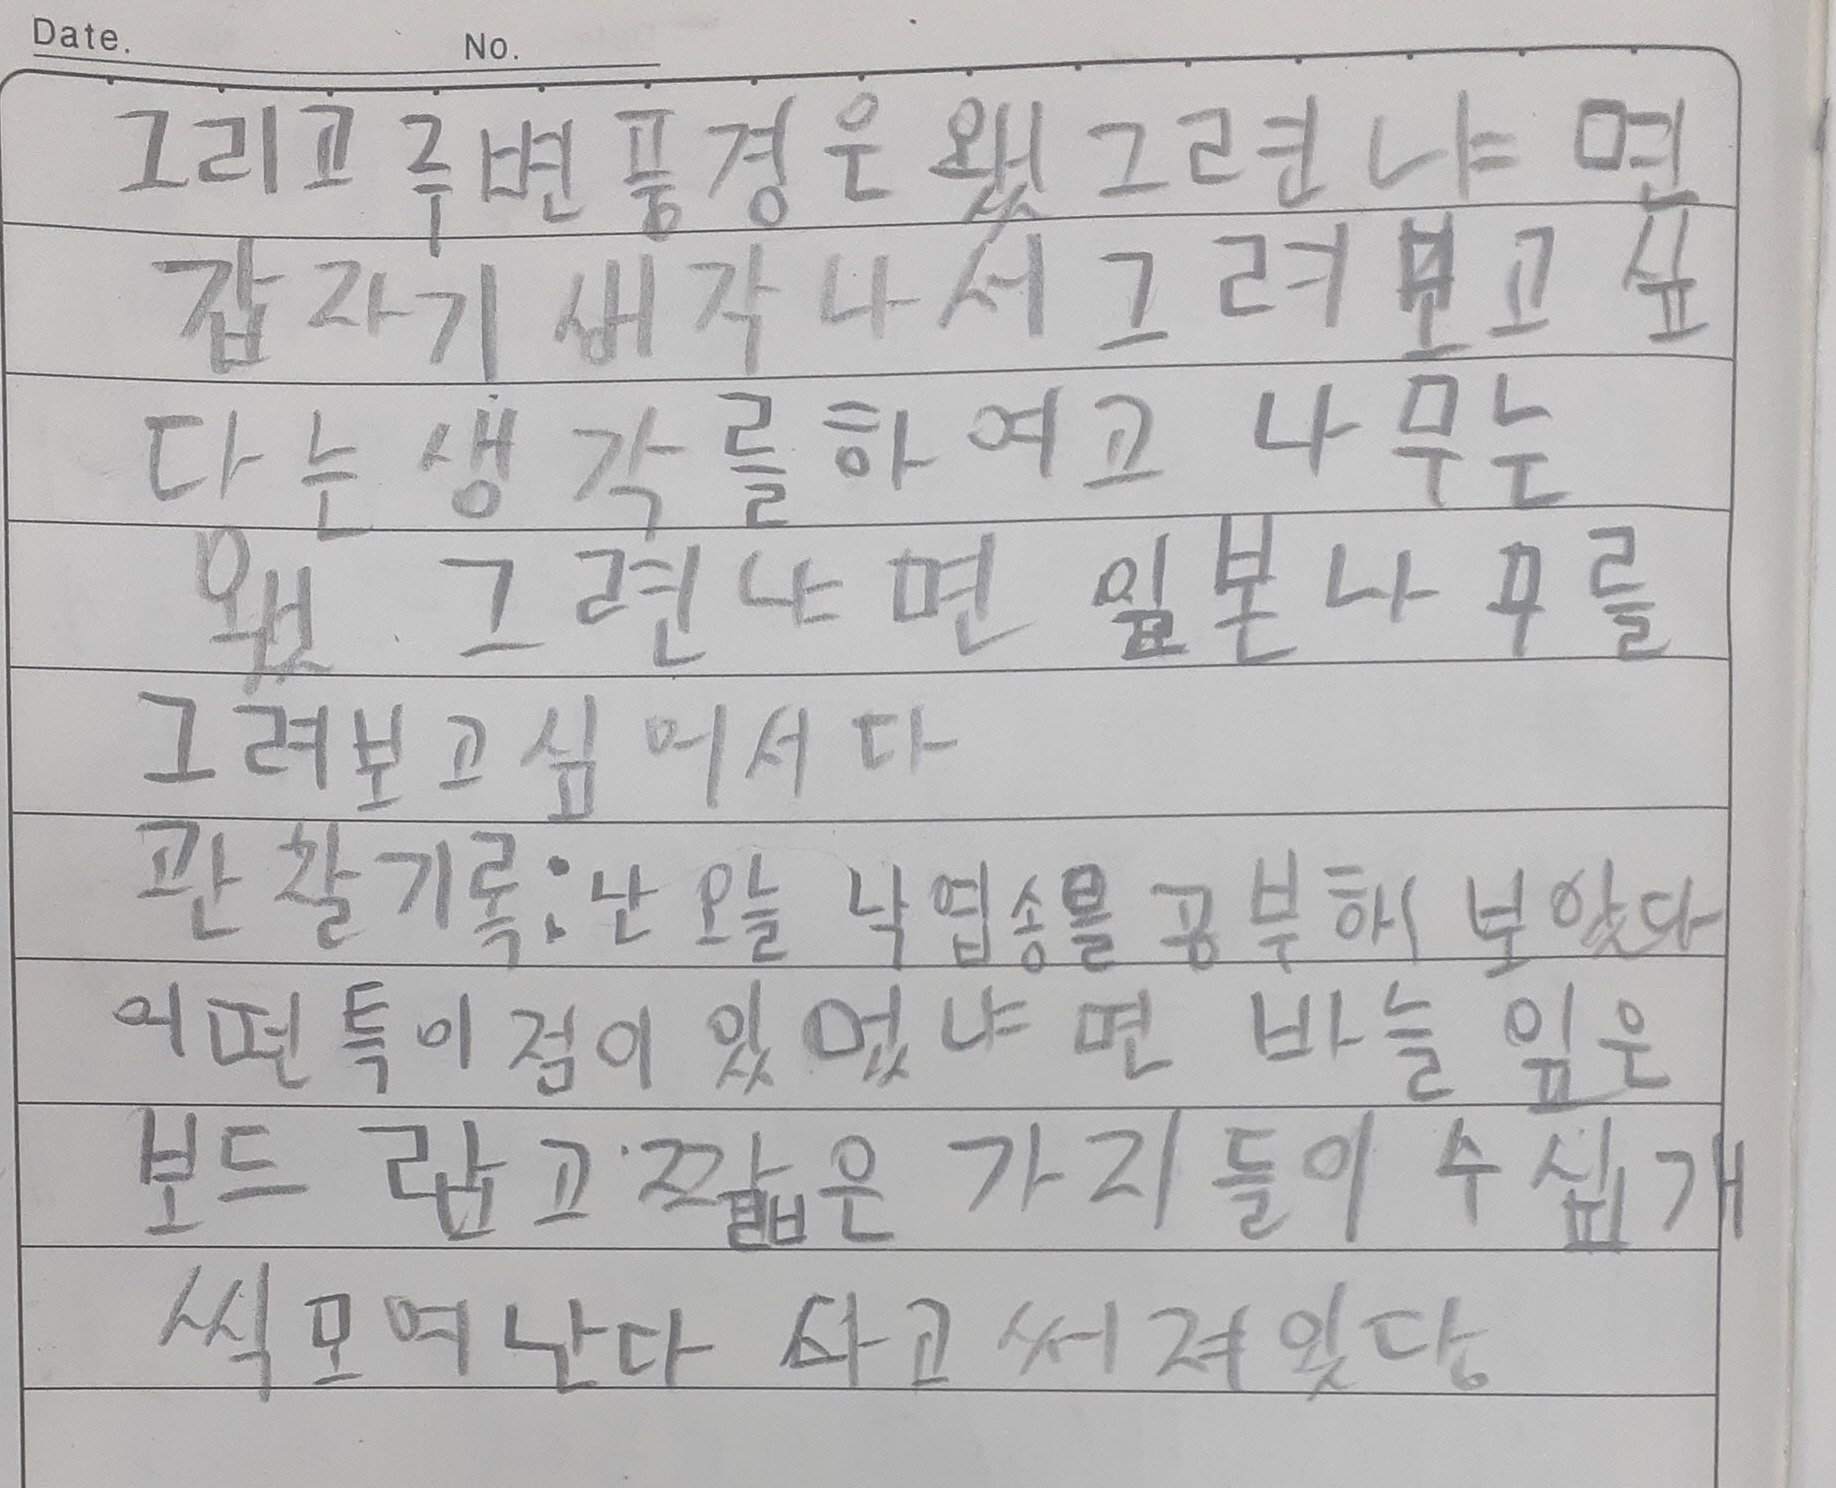 Date. No.
그리고 주변 풍경은 왰 그련냐면
갑자기 생각나서 그려보고 싶
다는 생각를하여고 나무는
왰 그련냐면 일본나무를
그려보고싶어서다
관찰기록: 난 오늘 낙엽송믈 공부해 보았다
어떤 특이점이 있었냐면 바늘잎은
보드랍고 짧은 가지들이 수십개
씩모여난다 라고 써져있다.